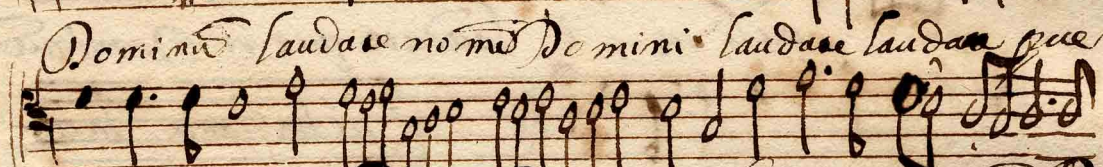 Dominũ laudate nomẽ Domini laudate laudate pue